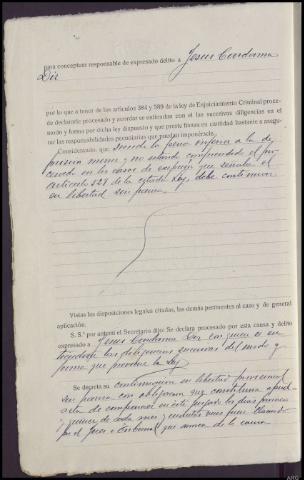 para conceptuar responsable de expresado delito a Jesus Cendarma
Dir
por lo que a tenor de los artículos 384 y 589 de la ley de Enjuiciamiento Criminal procede
declararle procesado y acordar se entiendan con él las sucesivas diligencias en el
modo y forma por dicha ley dispuesto y que preste fianza en cantidad bastante a asegurar
las responsabilidades pecuniarias que puedan imponérsele.
Considerando, que siendo la pena inferior a la de
prision menor y no estando comprendido el procesado
en los casos de excepción que señala el
artículo 529 de la citada Ley, debe continuar
en libertad sin fianza
Vistas las disposiciones legales citadas, las demás pertinentes al caso y de general
aplicación:
S. S.ª por ante mí el Secretario dijo: Se declara procesado por esta causa y delito
expresado a Jesus Cendarma Dir con quien se entiendan
las diligencias sucesivas del modo y
forma que previene la Ley
Se decreta su continuacion en libertad provisional
sin fianza con obligacion que constituirá apud
acta de comparecer en este Juzgado los dias primero
y quince de cada mes y cuantas veces fuere llamado
por el Juez o Tribunal que conozca de la causa